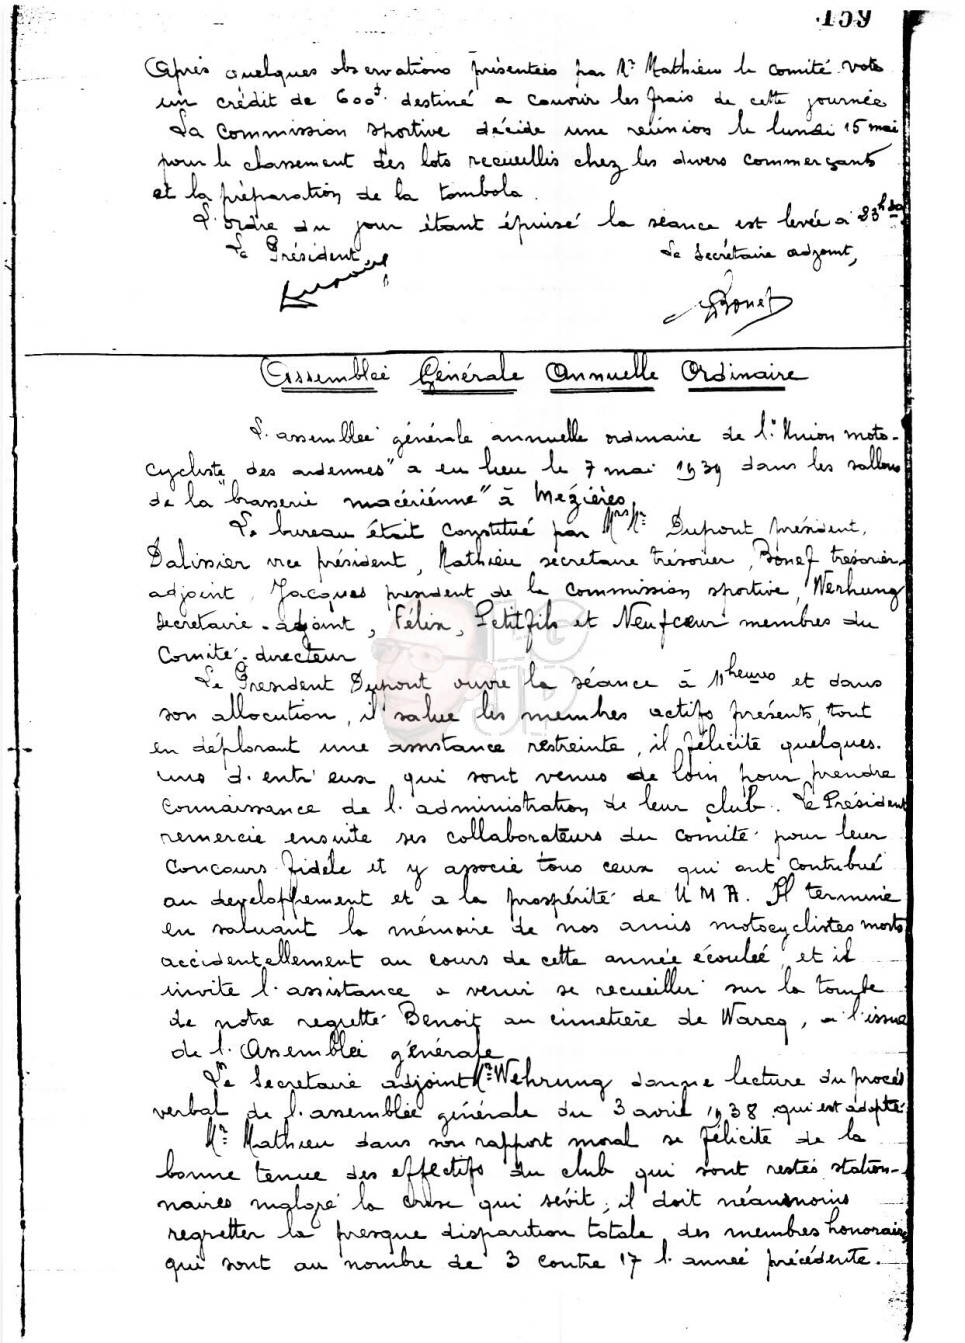 159
Après quelques observations présentées par Mr Mathieu le comité vote
un crédit de 600f destiné a couvrir les frais de cette journée
La commission sportive décide une réunion le lundi 15 mai
pour le classement des lots recueillis chez les divers commerçants
et la préparation de la tombola.
L'ordre du jour étant épuisé la séance est levée à 23h
Le Président,
Le Secrétaire adjoint,
Bonef
Assemblée Générale Annuelle Ordinaire
L'assemblée générale annuelle ordinaire de l'"Union moto-
cycliste des ardennes" a eu lieu le 7 mai 1939 dans les sallons
de la "brasserie macérienne" à Mézières.
Le bureau était constitué par Mrs Mr Dupont président,
Dalissier vice président, Mathieu secretaire trésorier, Bonef trésorier-
adjoint, Jacques president de la commission sportive, Werhung
Secretaire-adjoint, Félix, Petitfils et Neufcœur membres du
Comité-directeur
Le President Dupont ouvre la séance à 11 heures et dans
son allocution, il salue les membres actifs présents, tout
en déplorant une assistance restreinte, il félicite quelques-
uns d'entr'eux qui sont venus de loin pour prendre
connaissance de l'administration de leur club. Le Président
remercie ensuite ses collaborateurs du comité pour leur
concours fidèle et y associe tous ceux qui ont contribué
au developpement et a la prospérité de UMA. Il termine
en saluant la mémoire de nos amis motocyclistes morts
accidentellement au cours de cette année écoulée, et il
invite l'assistance a venir se recueillir sur la tombe
de notre regretté Benoit au cimetière de Warcq, a l'issue
de l'Assemblée générale
Le Secretaire adjoint Mr Wehrung donne lecture du procès
verbal de l'assemblée générale du 3 avril 1938 qui est adopté.
Mr Mathieu dans son rapport moral se félicite de la
bonne tenue des effectifs du club qui sont restés station-
naires malgré la crise qui sévit; il doit néanmoins
regretter la presque disparition totale des membres honoraires
qui sont au nombre de 3 contre 17 l'année précédente.
LG
JP